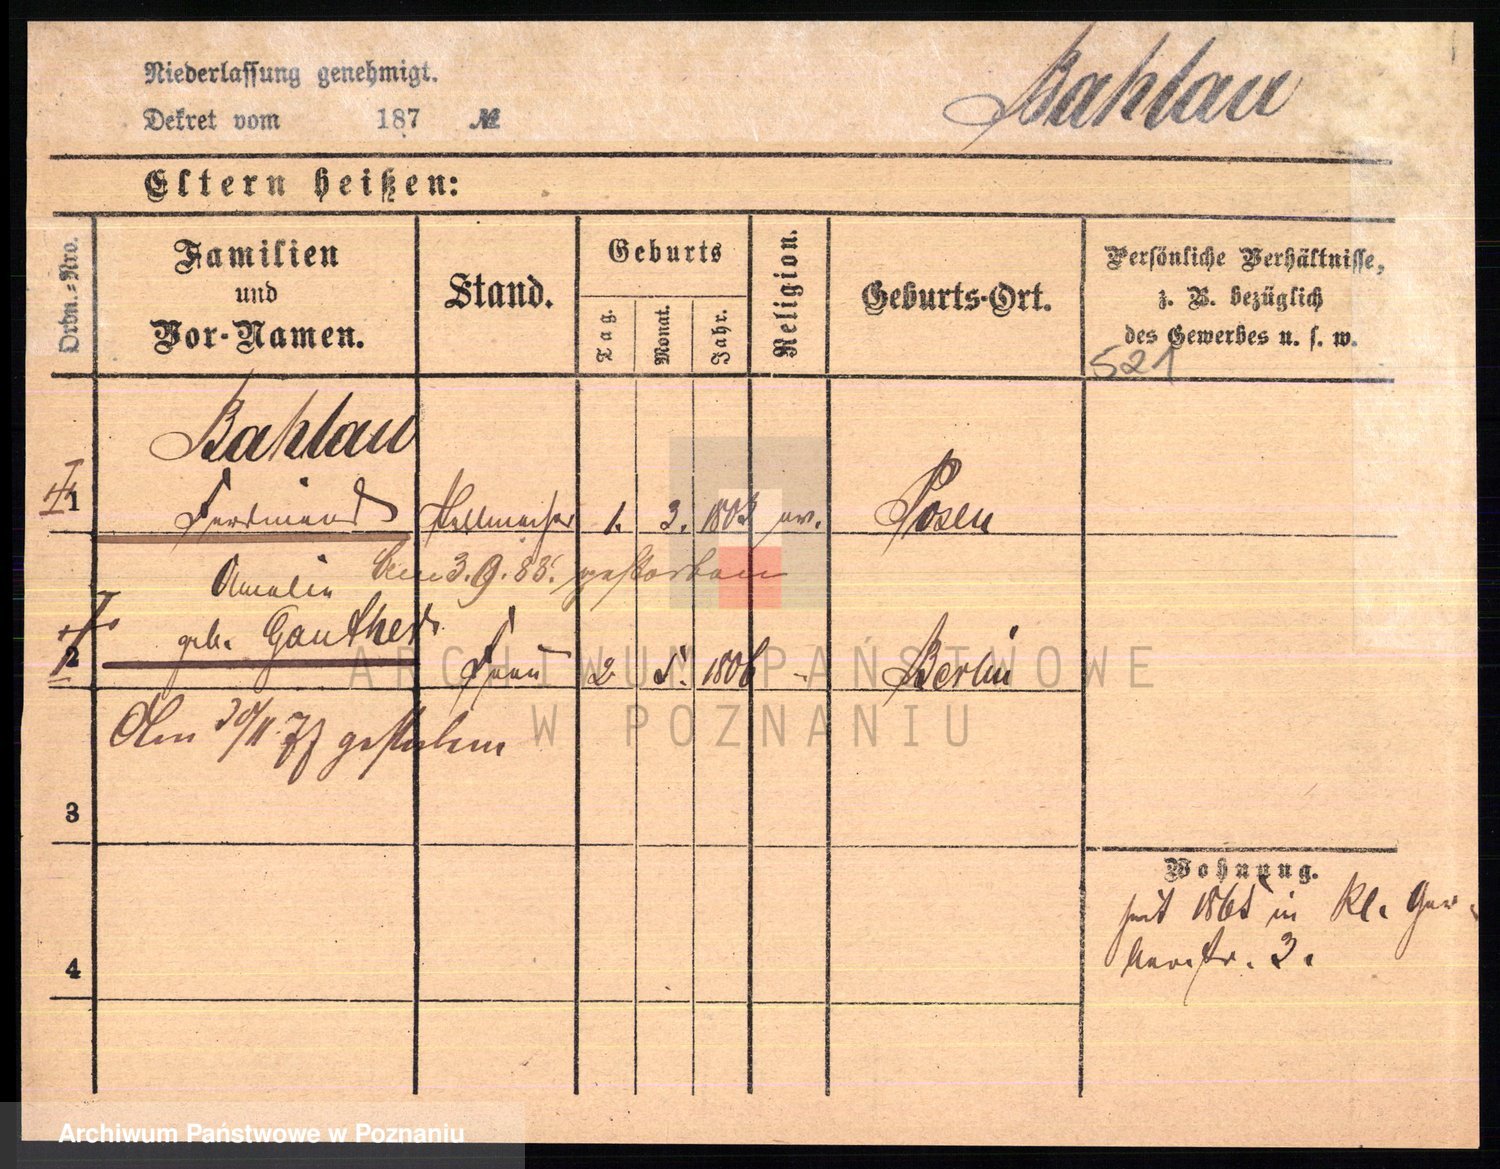 Niederlassung genehmigt.
Dekret vom 187 №
Bahlau
Eltern heißen:
Ordn.=Nro.
Familien
und
Vor-Namen.
Stand.
Geburts
Tag.
Monat.
Jahr.
Religion.
Geburts-Ort.
Persönliche Verhältnisse,
z. B. bezüglich
des Gewerbes u. s. w.
521
Bahlau
1 Ferdinand Stellmacher 1. 3. 1803 ev. Posen
Am 3.9.88. gestorben
Amalie
geb. Gauther
2 Frau 2 5. 1806 Berlin
Am 30/11 77 gestorben
3
4
Wohnung.
seit 1865 in Kl. Ger-
berstr. 3.
ARCHIWUM PAŃSTWOWE
W POZNANIU
Archiwum Państwowe w Poznaniu